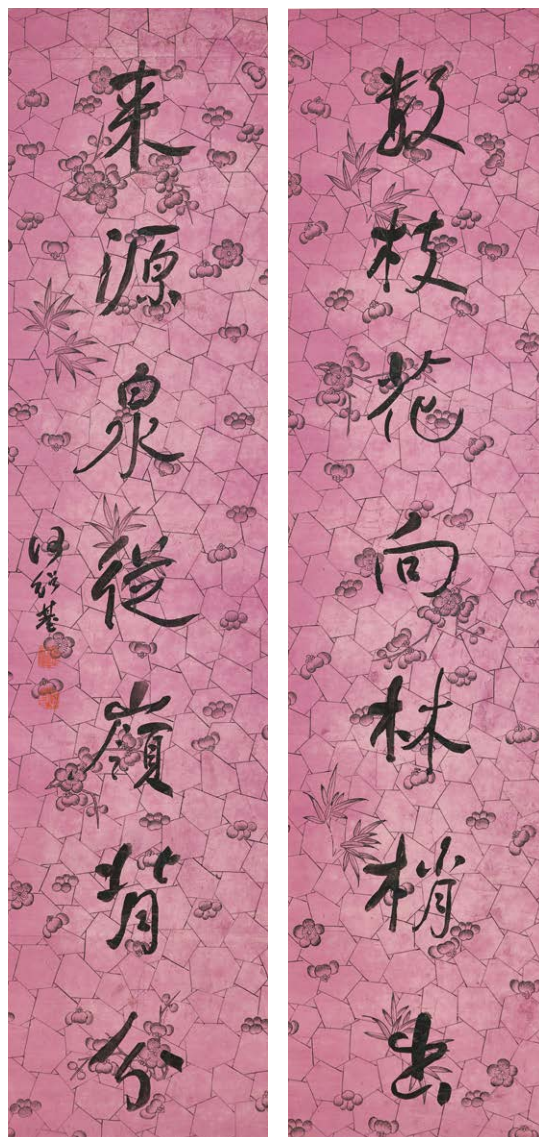 數枝花向林梢出
來源泉從嶺背分
何紹基